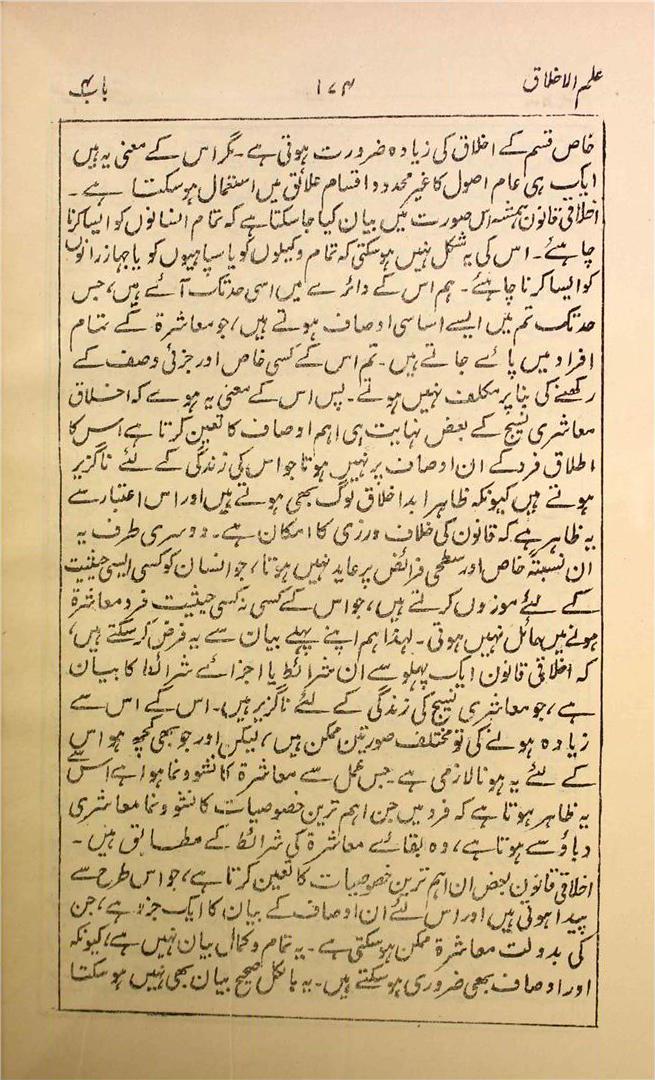 علم الاخلاق ۱۷۴ باب۴
خاص قسم کے اخلاق کی زیادہ ضرورت ہوتی ہے۔ مگر اس کے معنی یہ ہیں
ایک ہی عام اصول کا غیر محدود اقسام علائق میں استعمال ہوسکتا ہے۔
اخلاقی قانون ہمیشہ اس صورت میں بیان کیا جاسکتا ہے کہ تمام انسانوں کو ایسا کرنا
چاہئے۔ اس کی یہ شکل نہیں ہوسکتی کہ تمام وکیلوں کو یا سپاہیوں کو یا جہاز رانوں
کو ایسا کرنا چاہئے۔ ہم اس کے دائرے میں اسی حد تک آئے ہیں، جس
حد تک تم میں ایسے اساسی اوصاف ہوتے ہیں، جو معاشرۃ کے تمام
افراد میں پائے جاتے ہیں۔ تم اس کے کسی خاص اور جزئی وصف کے
رکھنے کی بنا پر مکلف نہیں ہوتے۔ پس اس کے معنی یہ ہوے کہ اخلاق
معاشری نسیج کے بعض نہایت ہی اہم اوصاف کا تعین کرتا ہے اس کا
اطلاق فرد کے ان اوصاف پر نہیں ہوتا جو اس کی زندگی کے لئے ناگزیر
ہوتے ہیں کیونکہ ظاہر ابد اخلاق لوگ بھی ہوتے ہیں اور اس اعتبار سے
یہ ظاہر ہے کہ قانون کی خلاف ورزی کا امکان ہے۔ دوسری طرف یہ
ان نسبتہً خاص اور سطحی فرائض پر عاید نہیں ہوتا، جو انسان کو کسی ایسی حیثیت
کے لئے موزوں کرتے ہیں، جو اس کے کسی نہ کسی حیثیت فرد معاشرۃ
ہونے میں حائل نہیں ہوتی۔ لہذا ہم اپنے پہلے بیان سے یہ فرض کرسکتے ہیں،
کہ اخلاقی قانون ایک پہلو سے ان شرائط یا اجزائے شرائط کا بیان
ہے، جو معاشری نسیج کی زندگی کے لئے ناگزیر ہیں)۔ اس کے اس سے
زیادہ ہونے کی تو مختلف صورتیں ممکن ہیں، لیکن اور جو بھی کچھ ہو اس
کے لئے یہ ہونا لازمی ہے۔ جس عمل سے معاشرۃ کا نشو ونما ہوا ہے اس سے
یہ ظاہر ہوتا ہے کہ فرد میں جن اہم ترین خصوصیات کا نشو ونما معاشری
دباؤ سے ہوتا ہے، وہ بقائے معاشرۃ کی شرائط کے مطابق ہیں۔
اخلاقی قانون بعض ان اہم ترین خصوصیات کا تعین کرتا ہے، جو اس طرح سے
پیدا ہوتی ہیں اور اس لئے ان اوصاف کے بیان کا ایک جزو ہے، جن
کی بدولت معاشرۃ ممکن ہوسکتی ہے۔ یہ تمام وکمال بیان نہیں ہے، کیونکہ
اور اوصاف بھی ضروری ہوسکتے ہیں۔ یہ بالکل صحیح بیان بھی نہیں ہوسکتا